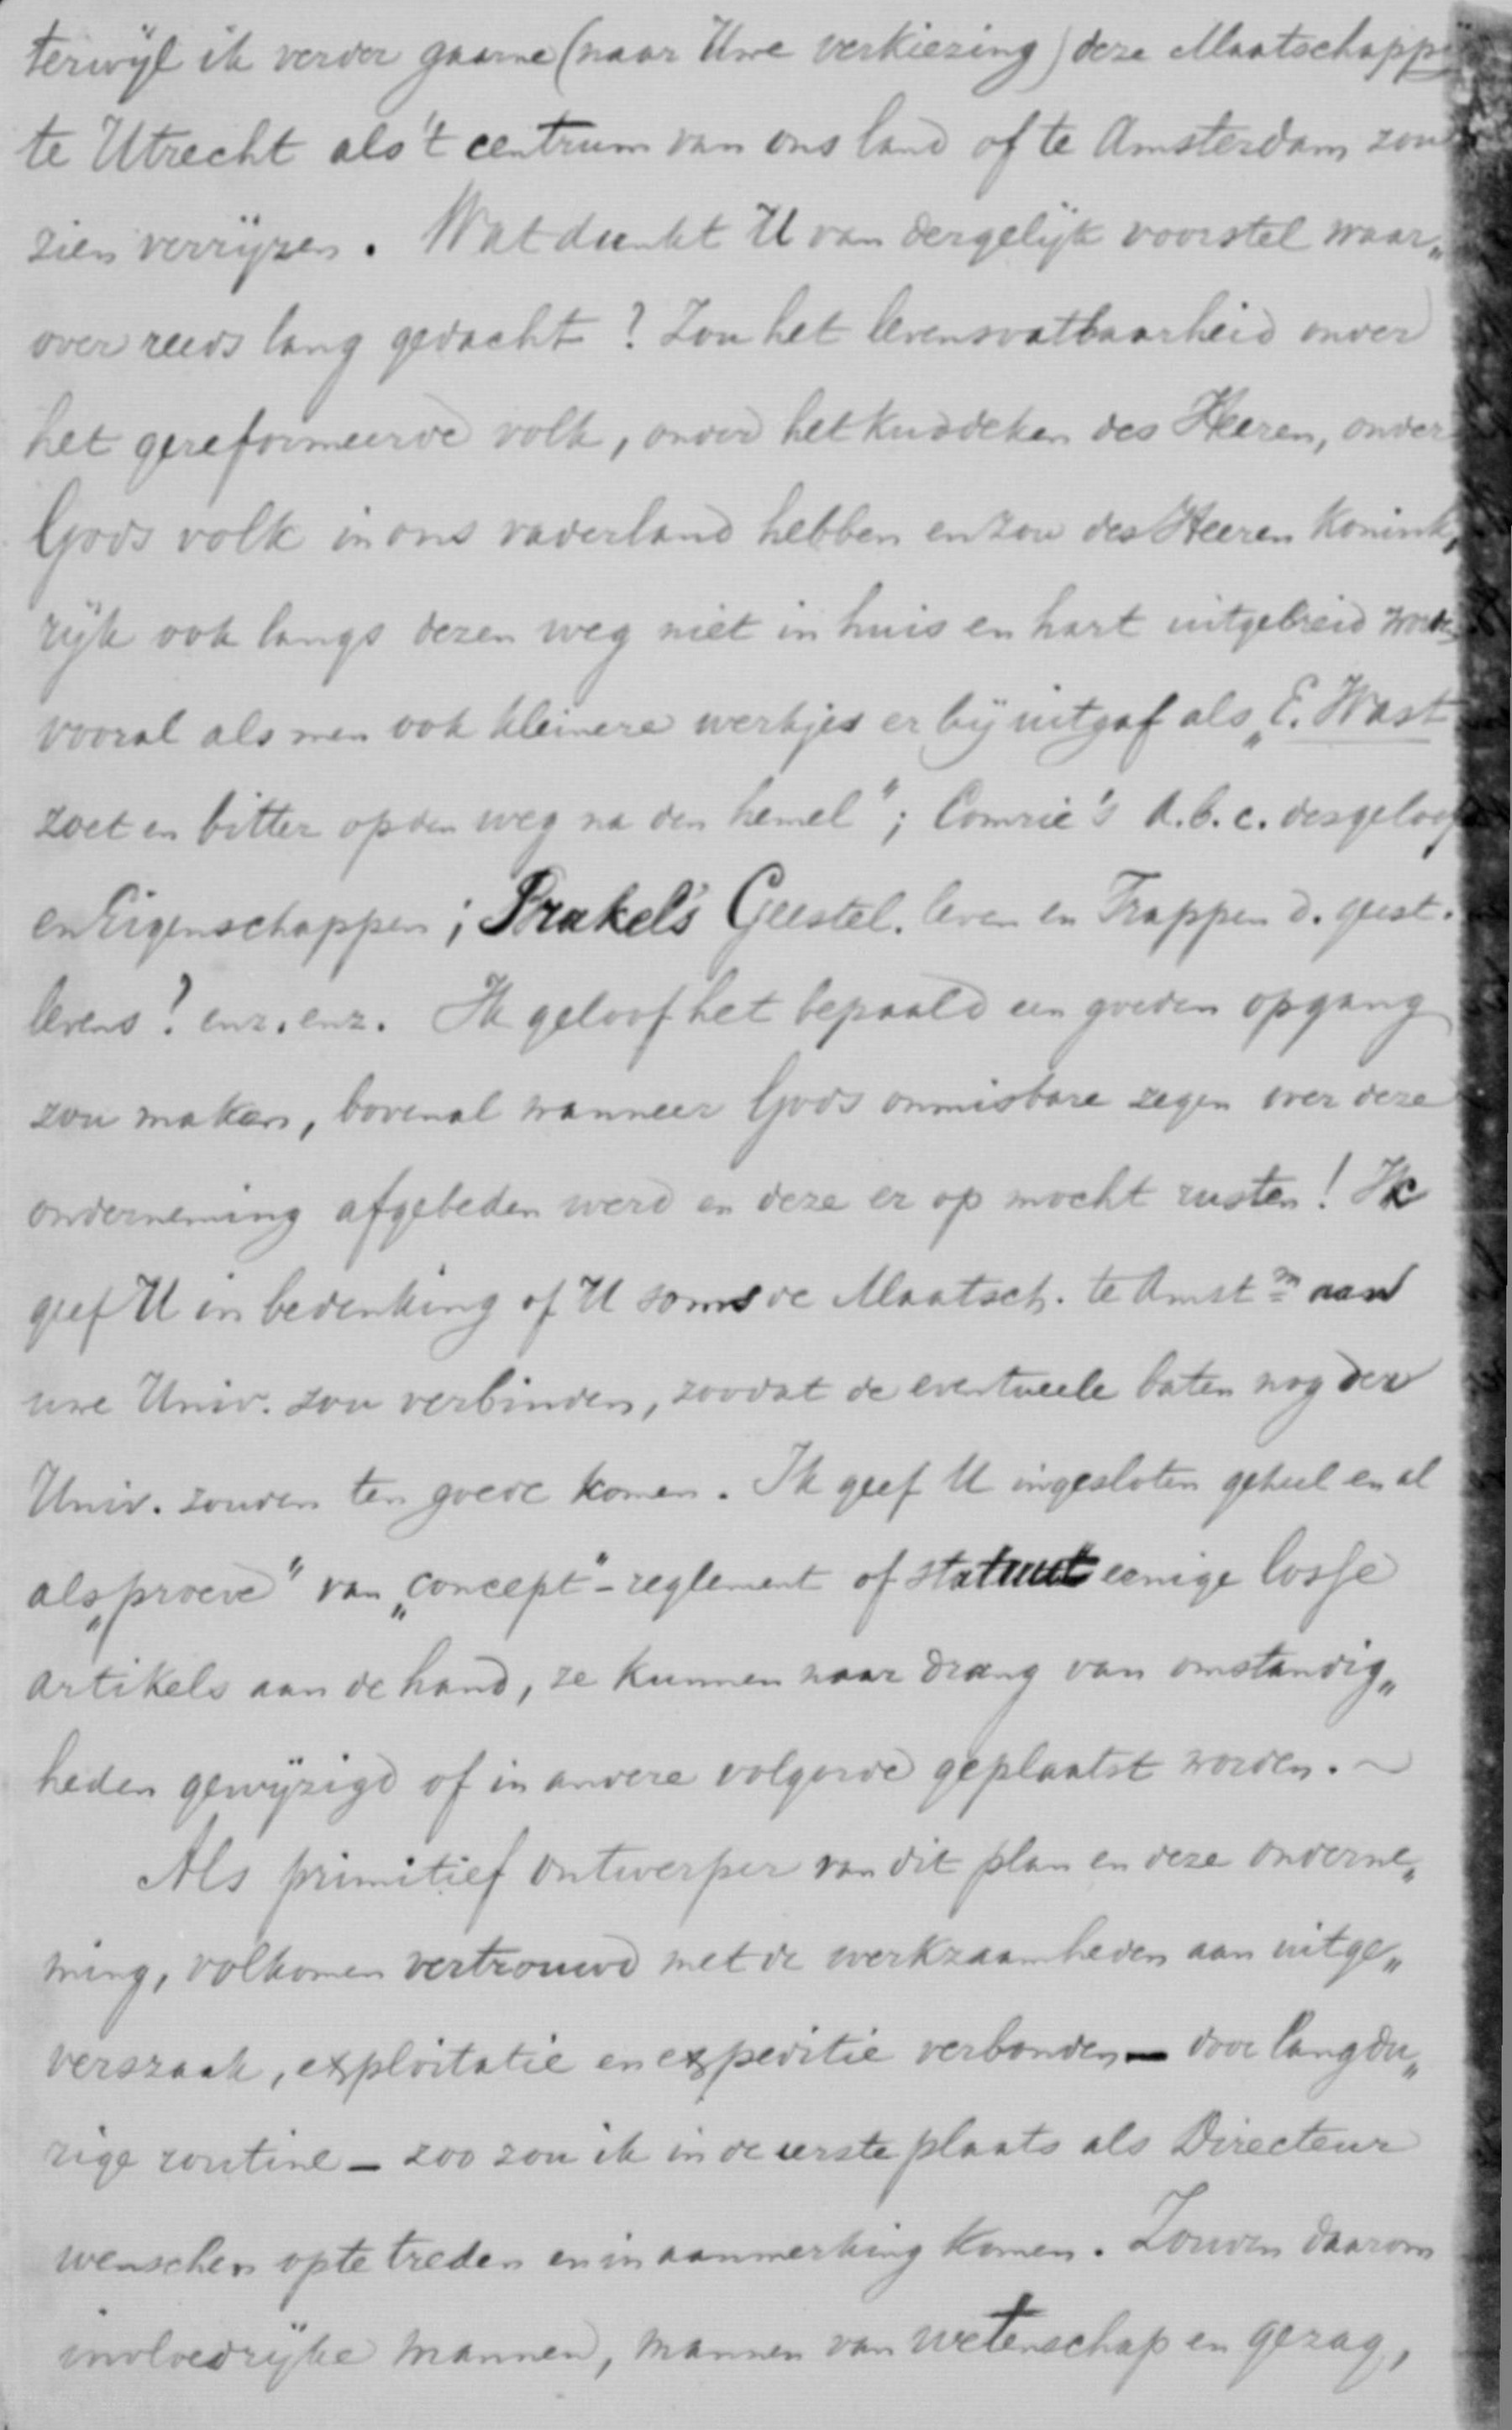 terwijl ik verder gaarne (naar Uwe verkiezing) deze Maatschappij
te Utrecht als 't centrum van ons land of te Amsterdam zou
zien verrijzen. Wat dunkt U van dergelijk voorstel waar„
over reeds lang gedacht? Zou het levensvatbaarheid onder
het gereformeerde volk, onder het kuddeken des Heeren, onder
Gods volk in ons vaderland hebben en zou des Heeren Konink„
rijk ook langs dezen weg niet in huis en hart uitgebreid worden
vooral als men ook kleinere werkjes er bij uitgaf als „E. Wast
zoet en bitter op den weg na den hemel"; Comrie's A.b.c. des geloofs
en Eigenschappen; Brakel's Geestel. leven en Trappen d. geest.
levens? enz. enz. Ik geloof het bepaald een goeden opgang
zou maken, bovenal wanneer Gods onmisbare zegen over deze
onderneming afgebeden werd en deze er op mocht rusten! Ik
geef U in bedenking of U soms de Maatsch. te Amstm aan
uwe Univ. zou verbinden, zoodat de eventueele baten nog der
Univ. zouden ten goede komen. Ik geef U ingesloten geheel en al
als „proeve" van „concept"-reglement of statuut eenige losse
artikels aan de hand, ze kunnen naar drang van omstandig„
heden gewijzigd of in andere volgorde geplaatst worden. ~
Als primitief ontwerper van dit plan en deze onderne„
ming, volkomen vertrouwd met de werkzaamheden aan uitge„
verszaak, exploitatie en expeditie verbonden — door langdu„
rige routine — zoo zou ik in de eerste plaats als Directeur
wenschen op te treden en in aanmerking komen. Zouden daarom
invloedrijke mannen, mannen van wetenschap en gezag,